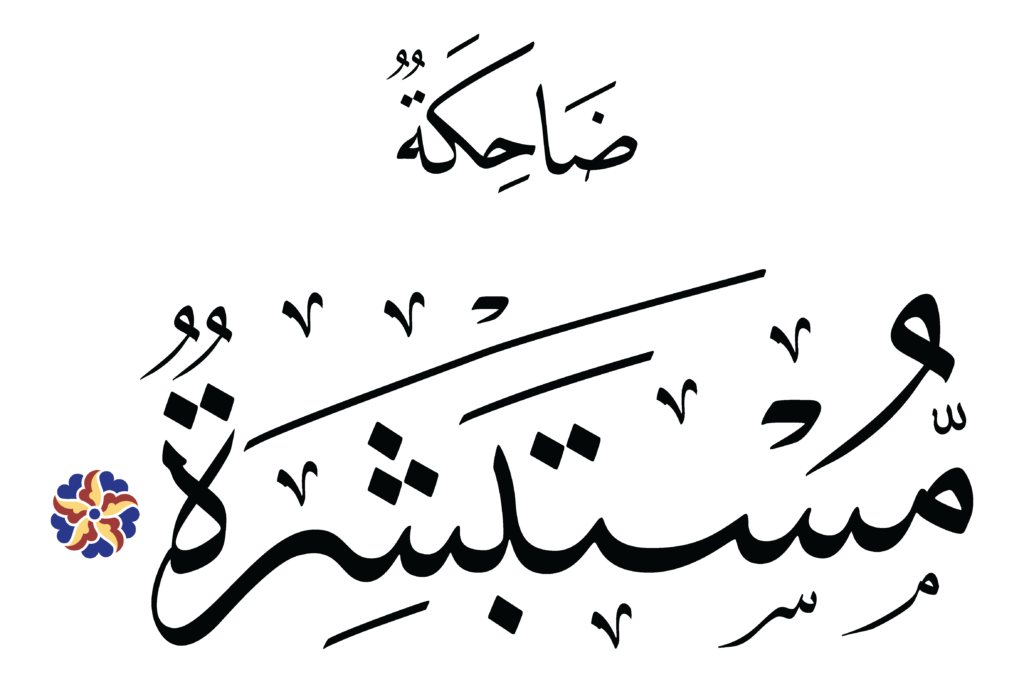 ضَاحِكَةٌ
مُّسْتَبْشِرَةٌ